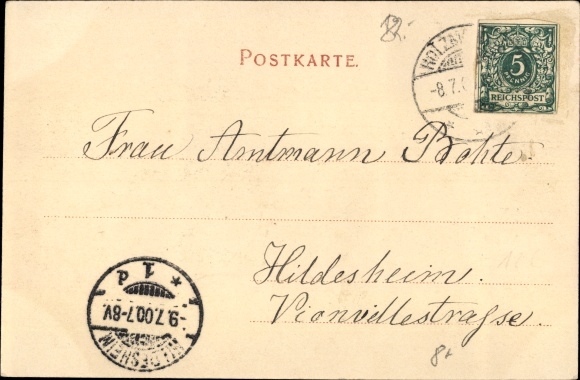 12.-
POSTKARTE.
HOLZ
-8.7.
5
PFENNIG
REICHSPOST
Frau Amtmann Bohte
Hildesheim.
Vionvillestraße.
HILDESHEIM
-9.7.00.7-8V.
* 1 d
8x